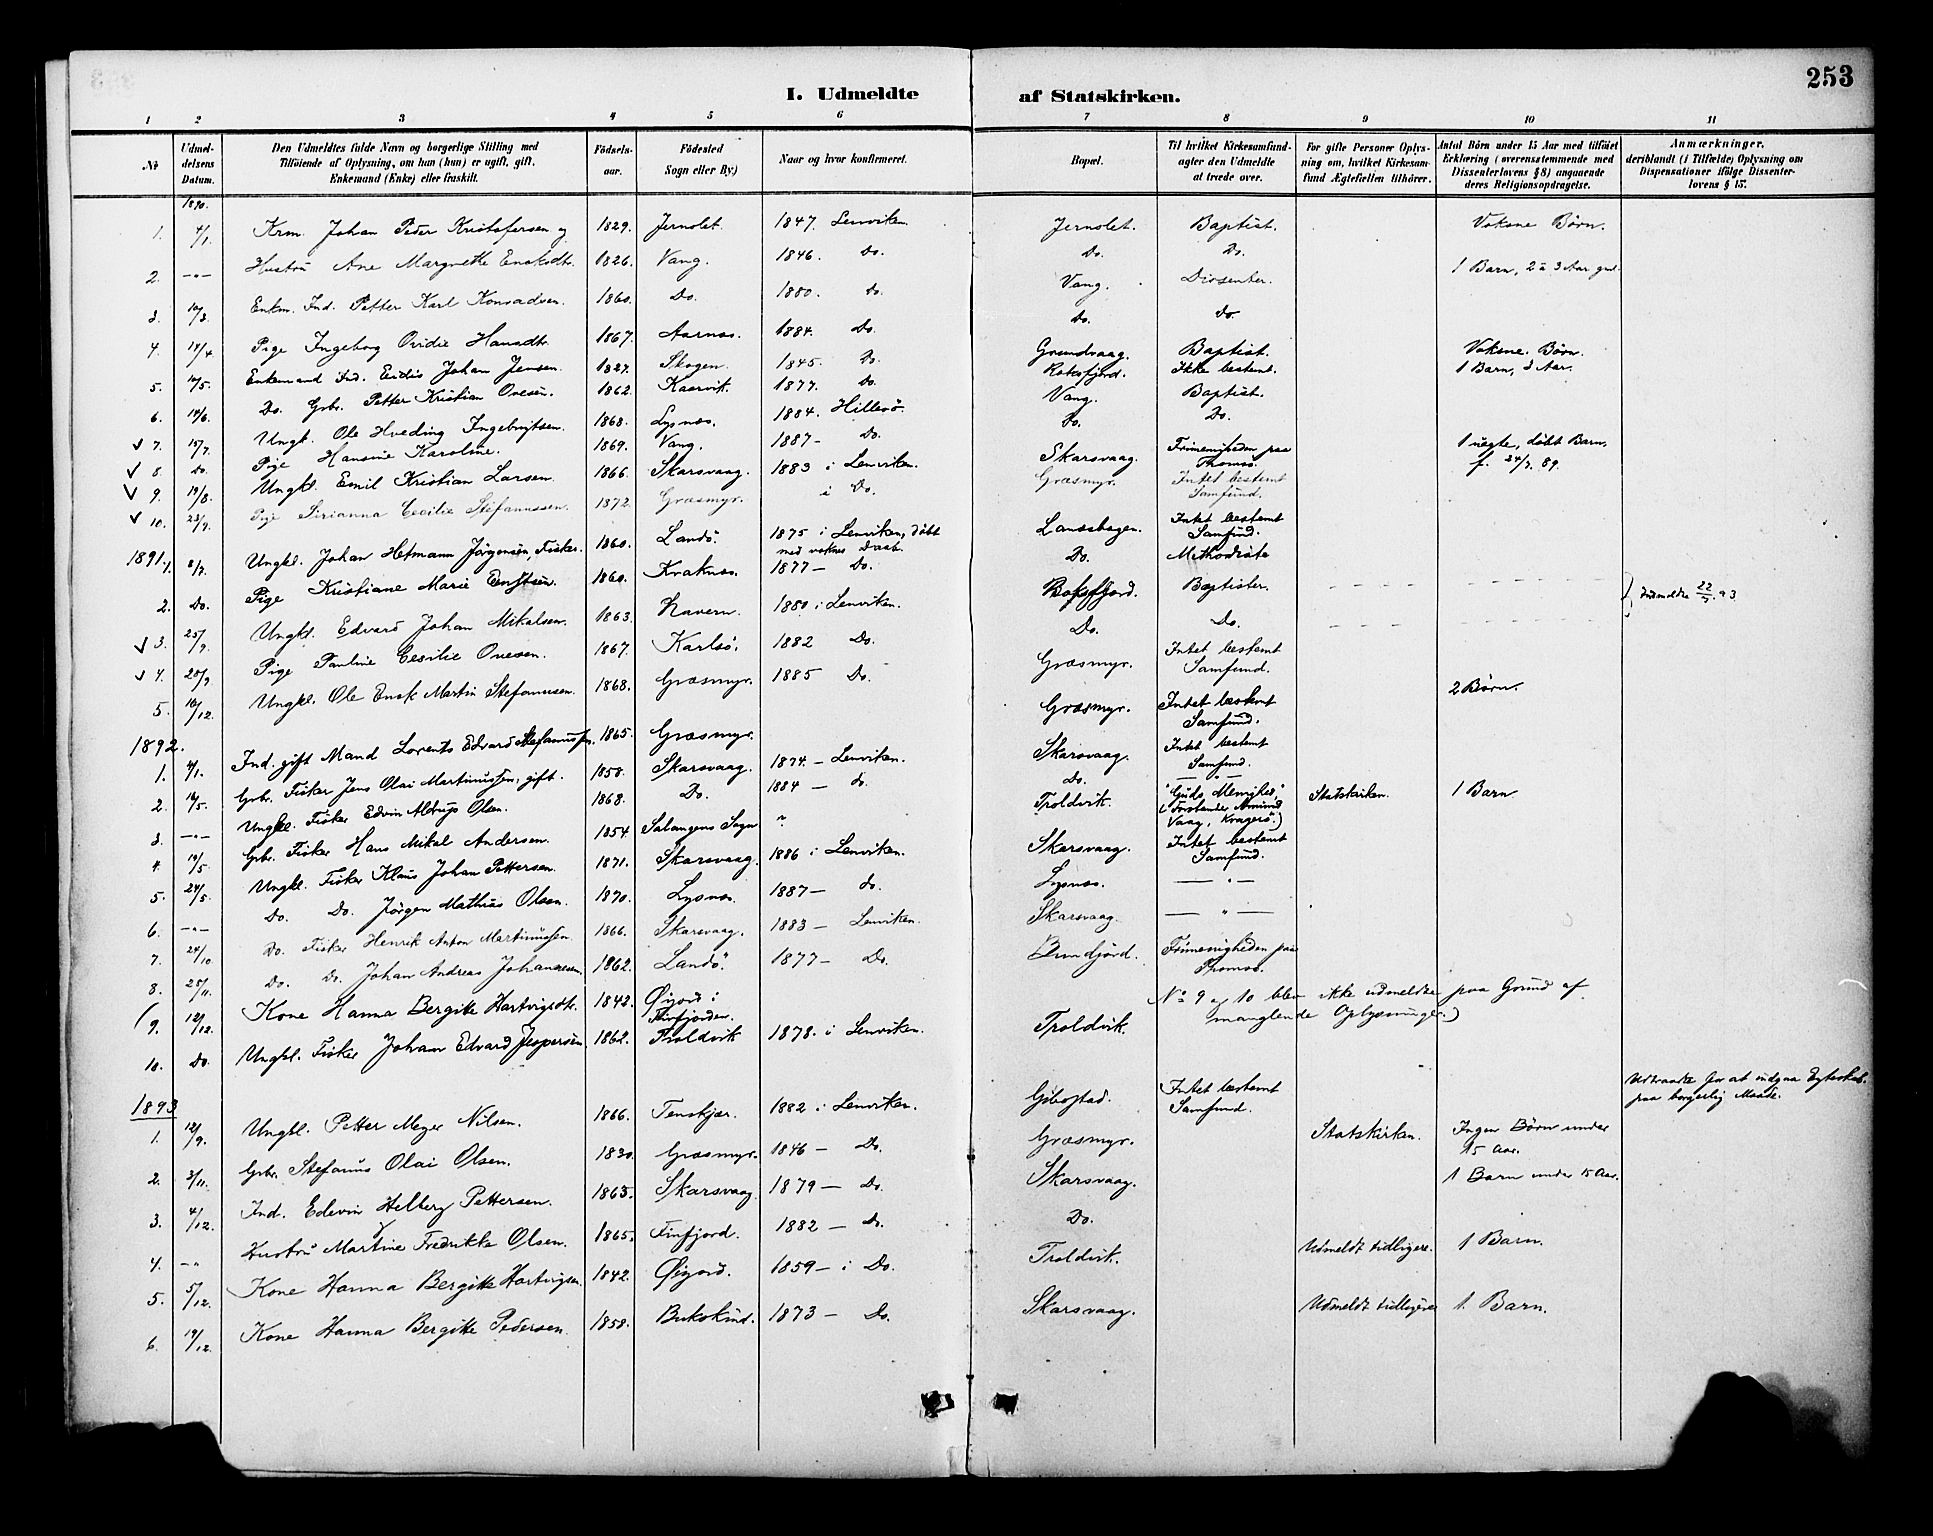 253
I. Udmeldte af Statskirken.
1 2 3 4 5 6 7 8 9 10 11
No
Udmeldelsens Datum.
Den Udmeldtes fulde Navn og borgerlige Stilling med
Tilföiende af Oplysning, om han (hun) er ugift, gift,
Enkemand (Enke) eller fraskilt.
Födselsaar.
Födested
Sogn eller By)
Naar og hvor konfirmeret.
Bopæl.
Til hvilket Kirkesamfund-
agter den Udmeldte
at træde over.
For gifte Personer Oplys-
ning om, hvilket Kirkesam-
fund Ægtefællen tilhörer.
Antal Börn under 15 Aar med tilföiet
Erklæring (overensstemmende med
Dissenterlovens § 8) angaaende
deres Religionsopdragelse.
Anmærkninger,
deriblandt (i Tilfælde) Oplysning om
Dispensationer ifölge Dissenter-
lovens § 15.
1890.
1. 4/1 Krm. Johan Peder Kristofersen og 1829. Jernolet. 1847. Lenviken. Jernolet. Baptist. Voksne Børn.
2. -"- Hustru Ane Margrethe 1826. Vang. 1846. Do. Do. Do.
3. 10/3. Enkm. Ind. Petter Karl Konradsen. 1860. Do. 1880. Do. Vang. Dissenter. 1 Barn, 2 à 3 Aar gml.
4. 14/4 Pige Ingeborg Ovidie Hansdtr. 1867. Aarnæs. 1884. Do. Do. do.
5. 10/5. Enkemand Ind. Johan Jensen. 1827. Skogen. 1845. Do. Grundvaag. Baptist. Voksne Børn.
6. 14/6. Do. Grbr. Petter Kristian Ovesen. 1862. Kaarvik. 1877. Do. Ikke bestemt. 1 Barn, 3 Aar.
7. 15/7. Ungk. Ole Hveding Ingebrigtsen. 1868. Lysnæs. 1884. Hillesö. Vang. Baptist.
8. Do. Pige Hansine Karoline. 1869. Vang. 1887 - Do. Do. Do.
9. 19/8. Ungkl. Emil Kristian Larsen. 1866. Skarsvaag. 1883 i Lenviken. Skarsvaag. Frimenigheden paa Thomsö. 1 uægte, döbt Barn, f. 24/7. 89.
10. 23/9. Pige Sirianna Cecilie Stefanussen. 1872. Græsmyr. i Do. Græsmyr. Intet bestemt Samfund.
1891.
1. 8/7. Ungkl. Johan Hetmann Jørgensen, Fisker. 1860. Landö. 1875 i Lenviken, döbt med voksne Daab. Intet bestemt Samfund.
2. Do. Pige Kristiane Marie 1860. Kraknæs. 1877 - Do. Do. Methodiste
3. 25/9. Ungkl. Edvard Johan Mikalsen. 1863. Havern. 1880 i Lenviken. Baptister. Indmeldte 22/7. 93.
4. 20/9 Pige Pauline Cecilie Ovesen. 1867. Karlsö. 1882 Do. Do. Do.
5. 10/12. Ungkl. Ole Enok Martin Stefanussen. 1868. Græsmyr. 1885 Do. Græsmyr. Intet bestemt Samfund.
1892.
1. 4/1. Ind. gift Mand Lorents Edvard Stefanussen. 1865. Græsmyr. Græsmyr. Intet bestemt Samfund. 2 Børn.
2. 14/5. Grbr. Fisker Jens Olai Martinussen, gift. 1858. Skarsvaag. 1874 - Lenviken. Skarsvaag. Intet bestemt Samfund.
3. -"- Ungkl. Fisker Edvin Olsen. 1868. Do. 1884 - do. Do. -"-
4. 19/5. Grbr. Fisker Hans Mikal Andersen. 1854. Salangens Sogn ? Troldvik. "Guds Menighed," (Forstander Vaag, Kragerö.) Statskirken. 1 Barn
5. 24/5. Ungkl. Fisker Klaus Johan Pettersen. 1871. Skarsvaag. 1886 i Lenviken. Skarsvaag. Intet bestemt Samfund.
6. -"- Do. Do. Jørgen Mathias Olsen. 1870. Lysnæs. 1887 - do. Lysnæs. -"-
7. 24/10 Do. Fisker Henrik Anton Martinussen 1866. Skarsvaag. 1883 - Lenviken. Skarsvaag. -"-
8. 25/11. Do. Do. Johan Andreas Johannesen. 1862. Landö. 1877 - Do. Frimenigheden paa Thomsö.
9. 12/12. Kone Hanna Bergitte Hartvigsdtr. 1842. Øijord i Finfjorden. No 9 og 10 blev ikke udmeldte paa Grund af manglende Oplysninger.)
10. Do. Ungkl. Fisker Johan Edvard Jespersen. 1862. Troldvik 1878. i Lenviken. Troldvik.
1893
1. 12/9. Ungkl. Petter Meyer Nilsen. 1866. Tenskjær. 1882 i Lenviken. Gibostad. Intet bestemt Samfund. Udtraadte for at indgaa Egteskab paa borgerlig Maade.
2. 3/11. Grbr. Stefanus Olai Olsen. 1830. Græsmyr. 1846 - Do. Græsmyr. Statskirken. Ingen Børn under 15 Aar.
3. 4/12. Ind. Edevin Helberg Pettersen. 1865. Skarsvaag. 1879 - Do. Skarsvaag. 1 Barn under 15 Aar.
4. -"- Hustru Martine Fredrikke Olsen. 1865. Finfjord. 1882 - Do. Do.
5. 5/12. Kone Hanna Bergitte Hartvigsen. 1842. Øijord. 1859 - i Do. Troldvik. Udmeldt tidligere. 1 Barn.
6. 19/12. Kone Hanna Bergitte Pedersen. 1858. Bukskind. 1873 - Do. Skarsvaag. Udmeldt tidligere 1. Barn.